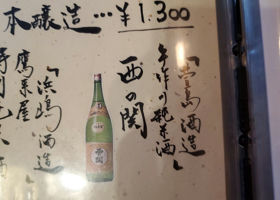 本醸造…¥1.300
「萱島酒造」
手作り純米酒
西の関
西の関
「浜嶋酒造」
鷹来屋